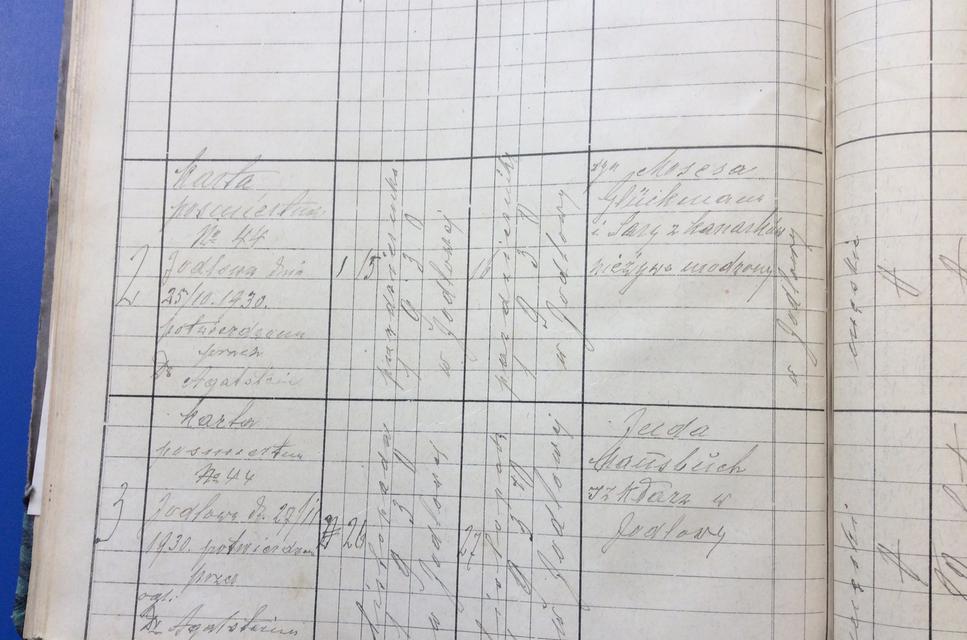 2
Karta
pośmiertna
№ 44
Jodłowa dnia
25/10.1930.
potwierdzona
przez
Dr Agatstein
15
października
1930
w Jodłowej
16
października
1930
w Jodłowej
syn Mosesa
Glückmann
i Sary z Kanarków
nieżywo urodzony
w Jodłowy
męskie
3
Karta
pośmiertna
№ 44
Jodłowa d. 27/11
1930. potwierdzona
przez
ogl.
Dr Agatsteina
26
listopada
1930
w Jodłowej
27
listopada
1930
w Jodłowej
Juda
w
Jodłowy